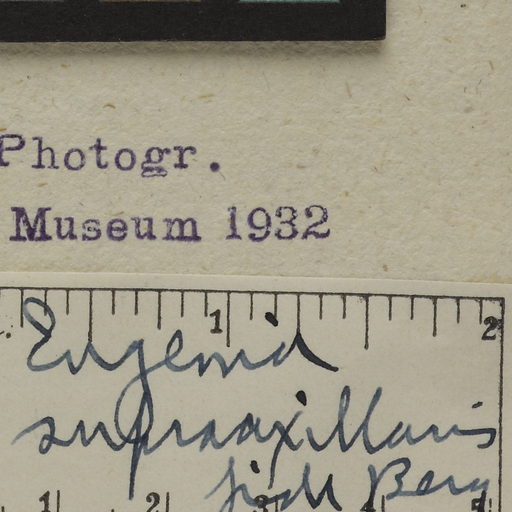 Photogr.
Museum 1932
1 2
Eugenia
supraaxillaris
fide Berg
1 2 3 4 5